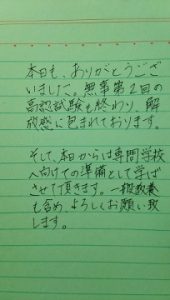 本日も、ありがとうござ
いました。無事第2回の
高認試験も終わり、解
放感に包まれております。
そして、本日からは専門学校
へ向けての準備として学ば
させて頂きます。一般教養
も含め、よろしくお願い致
します。